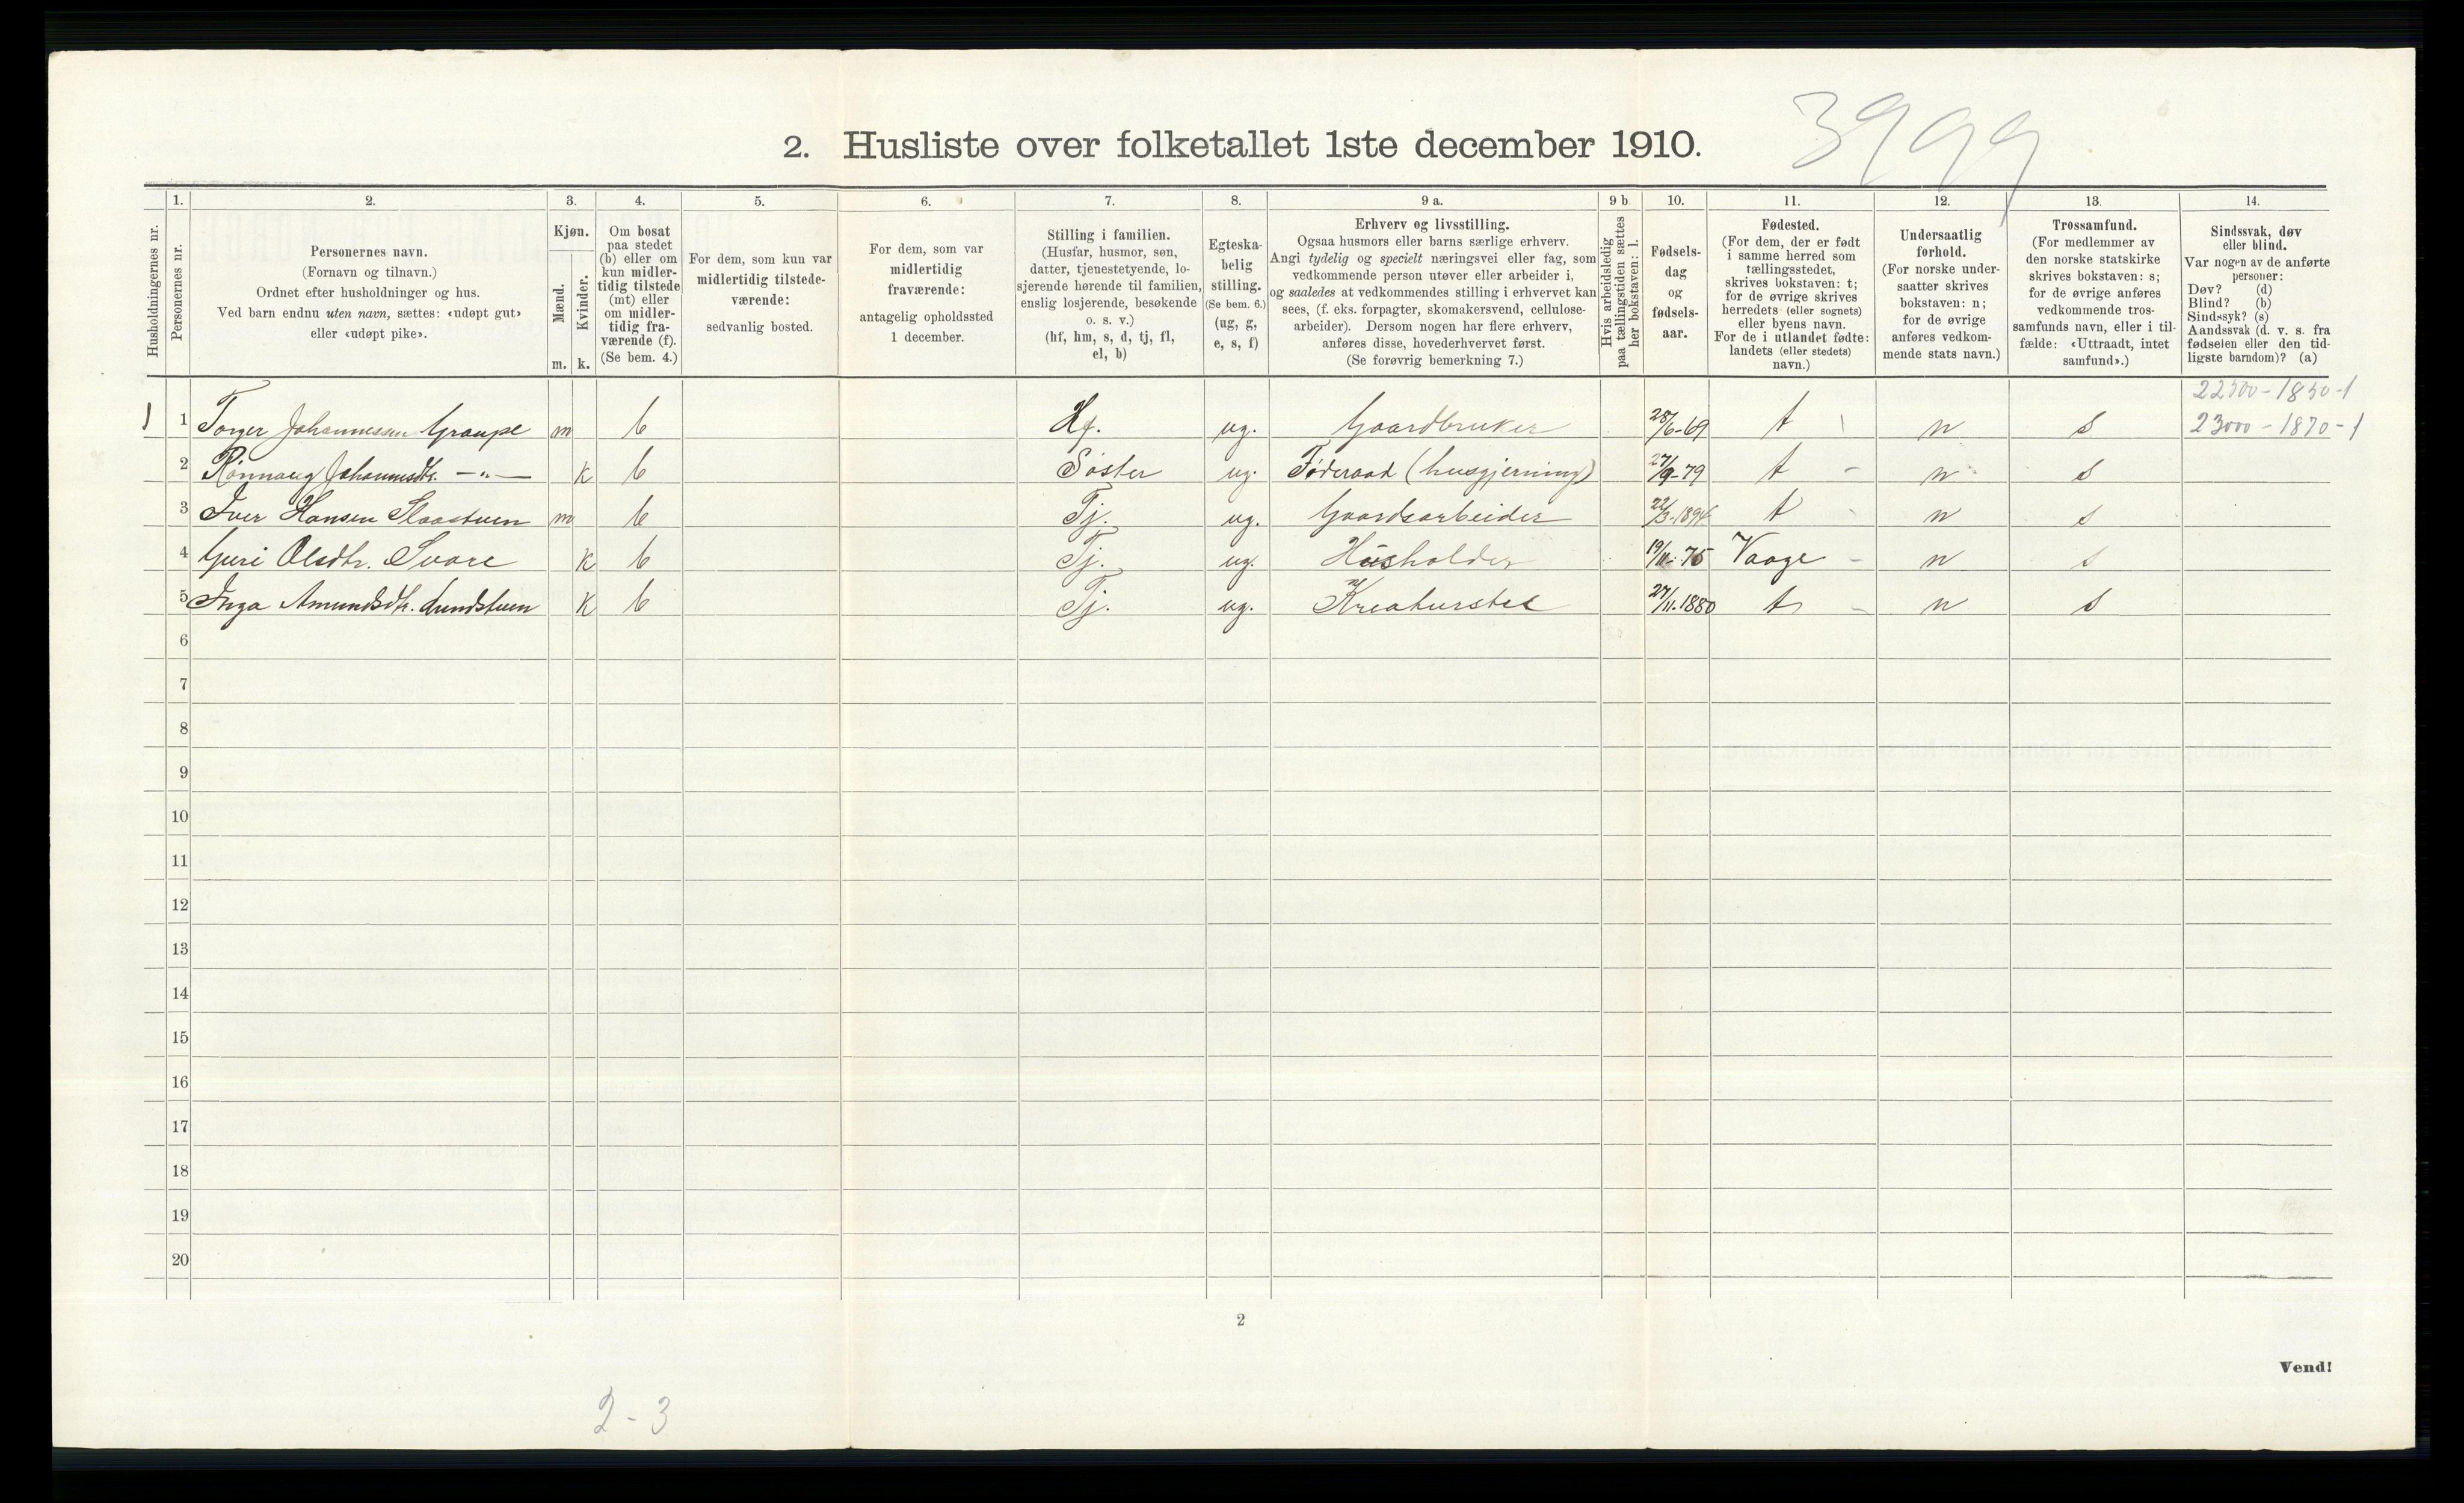 3999
2. Husliste over folketallet 1ste december 1910.
Husholdningernes nr.
1. Personernes nr.
2. Personernes navn. (Fornavn og tilnavn.) Ordnet efter husholdninger og hus. Ved barn endnu uten navn, sættes: «udøpt gut» eller «udøpt pike».
3. Kjøn. Mænd. m. Kvinder. k.
4. Om bosat paa stedet (b) eller om kun midlertidig tilstede (mt) eller om midlertidig fraværende (f). (Se bem. 4.)
5. For dem, som kun var midlertidig tilstedeværende: sedvanlig bosted.
6. For dem, som var midlertidig fraværende: antagelig opholdssted 1 december.
7. Stilling i familien. (Husfar, husmor, søn, datter, tjenestetyende, losjerende hørende til familien, enslig losjerende, besøkende o. s. v.) (hf, hm, s, d, tj, fl, el, b)
8. Egteskabelig stilling. (Se bem. 6.) (ug, g, e, s, f)
9 a. Erhverv og livsstilling. Ogsaa husmors eller barns særlige erhverv. Angi tydelig og specielt næringsvei eller fag, som vedkommende person utøver eller arbeider i, og saaledes at vedkommendes stilling i erhvervet kan sees, (f. eks. forpagter, skomakersvend, cellulosearbeider). Dersom nogen har flere erhverv, anføres disse, hovederhvervet først. (Se forøvrig bemerkning 7.)
9 b Hvis arbeidsledig paa tællingstiden sættes her bokstaven: l.
10. Fødselsdag og fødselsaar.
11. Fødested. (For dem, der er født i samme herred som tællingsstedet, skrives bokstaven: t; for de øvrige skrives herredets (eller sognets) eller byens navn. For de i utlandet fødte: landets (eller stedets) navn.)
12. Undersaatlig forhold. (For norske undersaatter skrives bokstaven: n; for de øvrige anføres vedkommende stats navn.)
13. Trossamfund. (For medlemmer av den norske statskirke skrives bokstaven: s; for de øvrige anføres vedkommende trossamfunds navn, eller i tilfælde: «Uttraadt, intet samfund».)
14. Sindssvak, døv eller blind. Var nogen av de anførte personer: Døv? (d) Blind? (b) Sindssyk? (s) Aandssvak (d. v. s. fra fødselen eller den tidligste barndom)? (a)
22500-1850-1
1 1 Torger Johannessen Graupe m b Hf. ug. Gaardbruker 28/6-69 t n s 23000-1870-1
2 Rønnaug Johannesdtr. —"— k b Søster ug. Føderaad (husgjerning) 27/9-79 t - n s
3 Iver Hansen Slaastuen m b Tj. ug. Gaardsarbeider 22/3-1894 t - n s
4 Guri Olsdtr. Svare k b Tj. ug. Husholder 19/11-75 Vaage - n s
5 Inga Amundsdtr. Lundstuen k b Tj. ug. Kreaturstel 27/11.1880 t - n s
6
7
8
9
10
11
12
13
14
15
16
17
18
19
20
2
Vend!
2-3